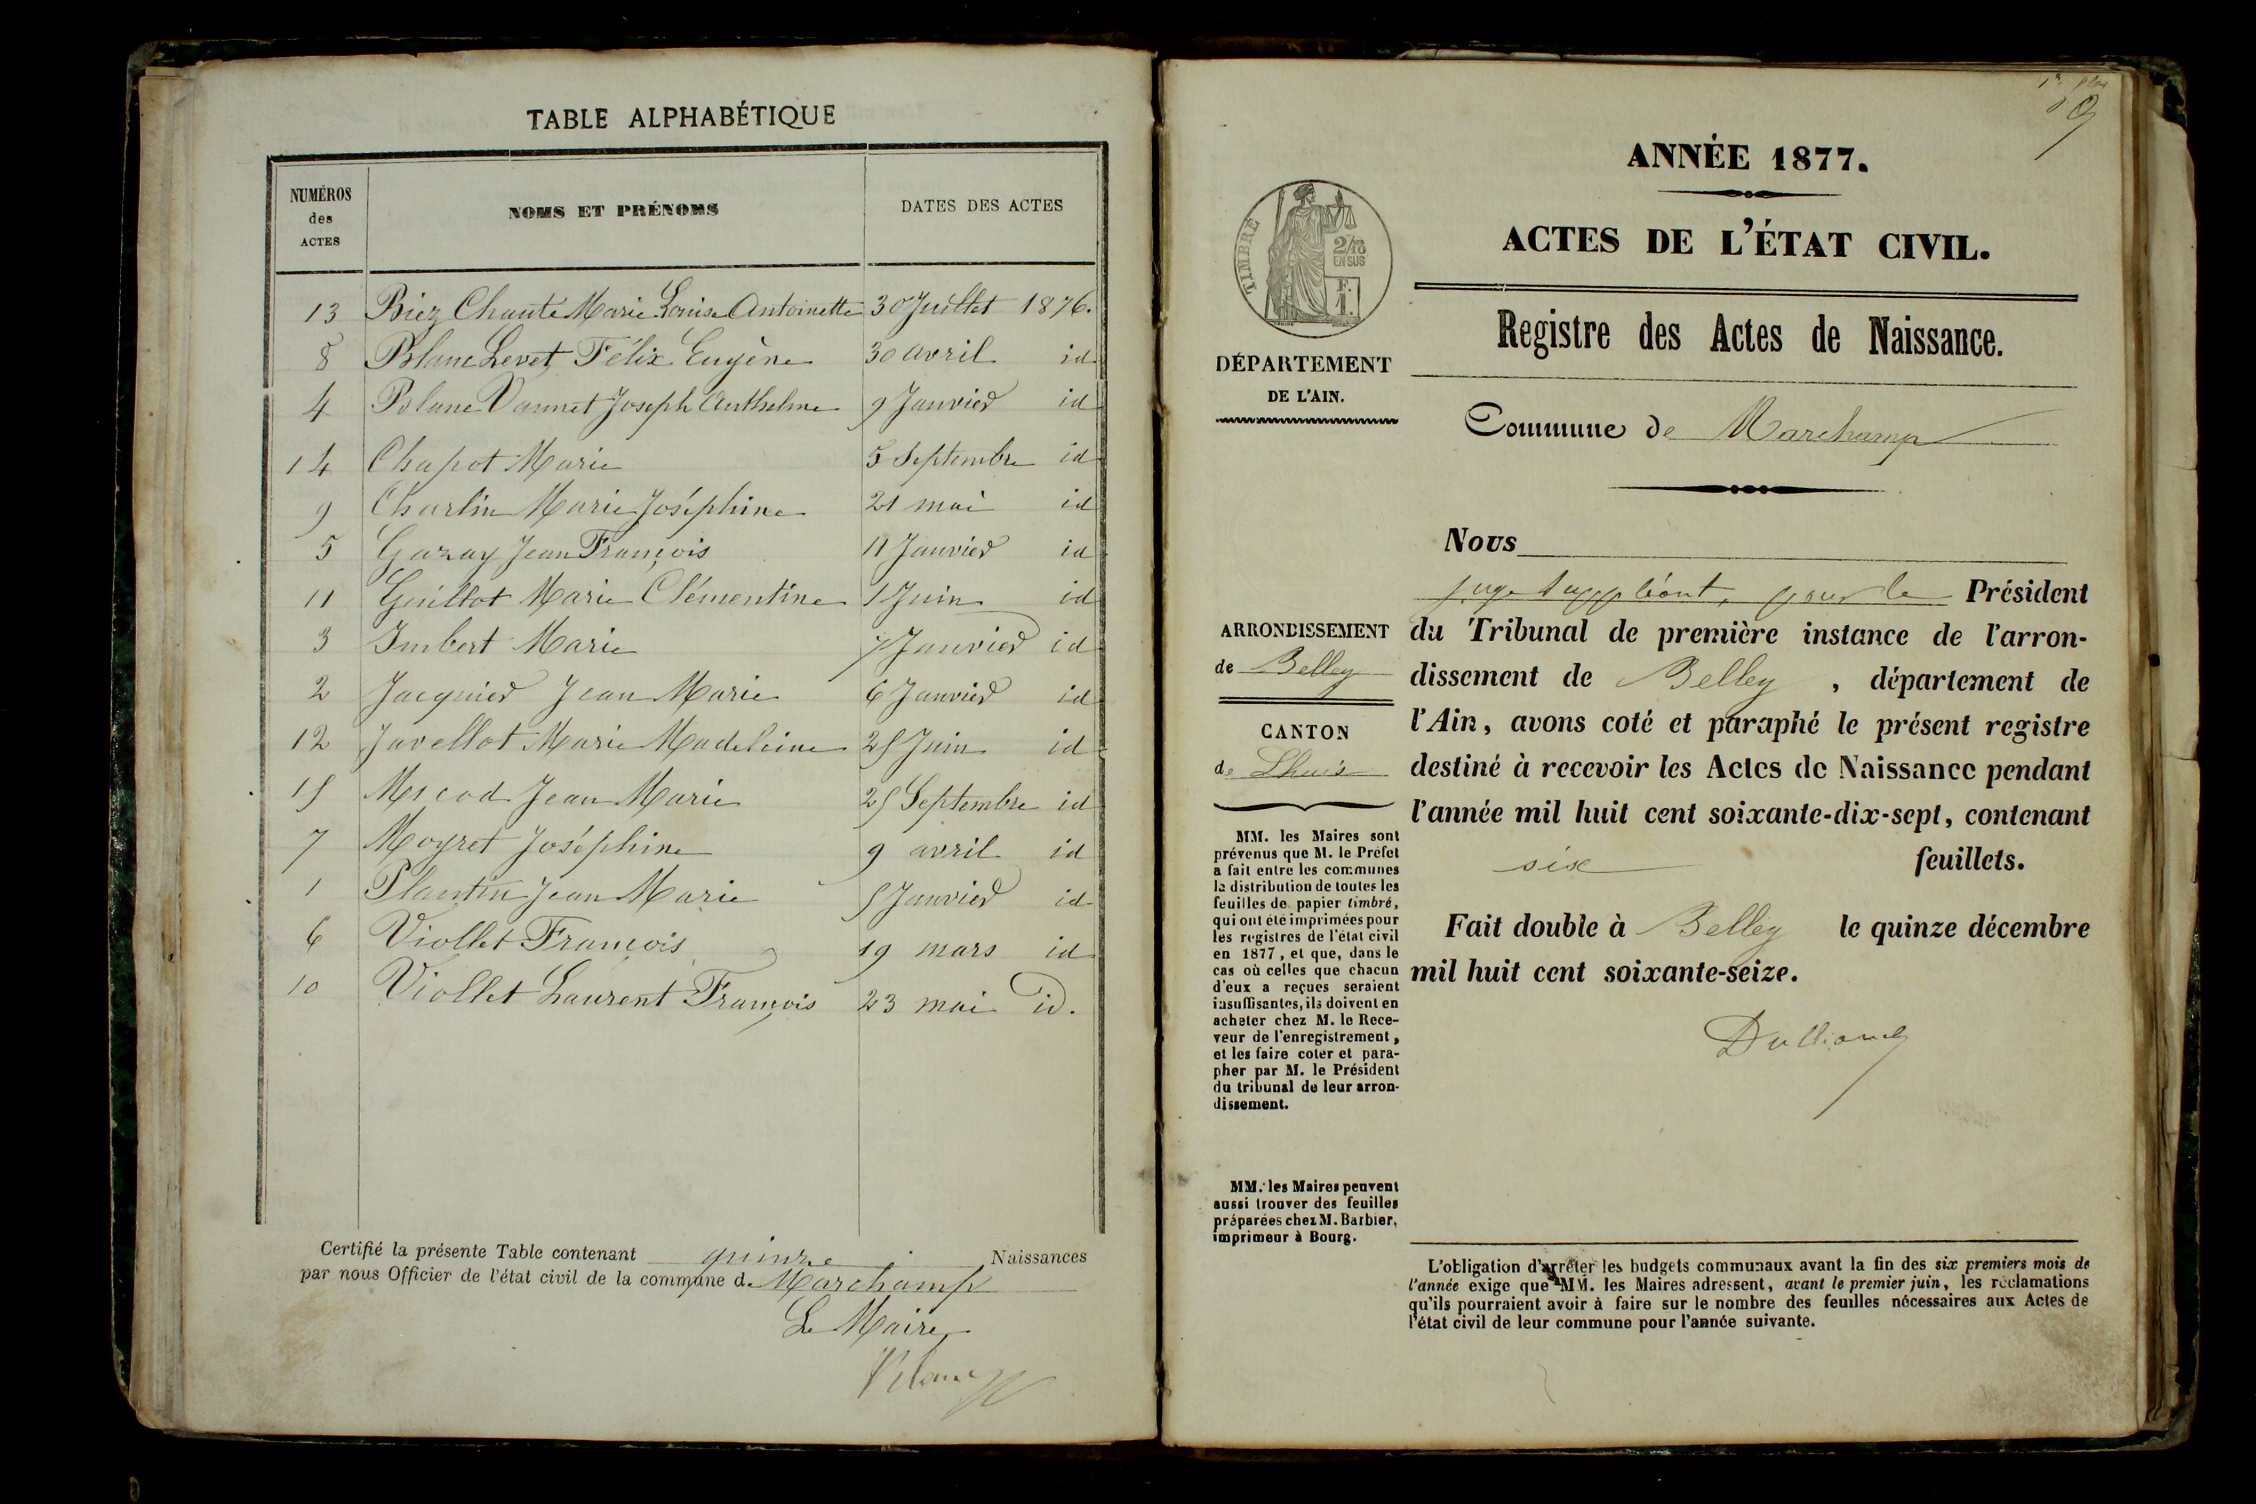 TABLE ALPHABÉTIQUE
NUMÉROS des ACTES NOMS ET PRÉNOMS DATES DES ACTES
13 Biez Chanté Marie Louise Antoinette 30 Juillet 1876.
8 Blanc Levet Félix Eugène 30 avril id
4 Blanc Vannet Joseph Anthelme 9 Janvier id
14 Chapot Marie 5 Septembre id
9 Charlin Marie Joséphine 21 mai id
5 Gazay Jean François 11 Janvier id
11 Guillot Marie Clémentine 1 Juin id
3 Imbert Marie 7 Janvier id
2 Jacquier Jean Marie 6 Janvier id
12 Javellot Marie Madeleine 25 Juin id
15 Jean Marie 25 Septembre id
7 Moyret Joséphine 9 avril id
1 Plantin Jean Marie 5 Janvier id
6 Viollet François 19 mars id
10 Viollet Laurent François 23 mai id.
Certifié la présente Table contenant quinze Naissances
par nous Officier de l'état civil de la commune de Marchamp
Le Maire
Blanc
19
ANNÉE 1877.
ACTES DE L'ÉTAT CIVIL.
TIMBRE
2/10
EN SUS
F.
1.
Registre des Actes de Naissance.
DÉPARTEMENT
DE L'AIN.
Commune de Marchamp
ARRONDISSEMENT
de Belley
CANTON
de Lhuis
MM. les Maires sont
prévenus que M. le Préfet
a fait entre les communes
la distribution de toutes les
feuilles de papier timbré,
qui ont été imprimées pour
les registres de l'état civil
en 1877, et que, dans le
cas où celles que chacun
d'eux a reçues seraient
insuffisantes, ils doivent en
acheter chez M. le Rece-
veur de l'enregistrement,
et les faire coter et para-
pher par M. le Président
du tribunal de leur arron-
dissement.
MM. les Maires peuvent
aussi trouver des feuilles
préparées chez M. Barbier,
imprimeur à Bourg.
Nous
juge suppléant, pour le Président
du Tribunal de première instance de l'arron-
dissement de Belley, département de
l'Ain, avons coté et paraphé le présent registre
destiné à recevoir les Actes de Naissance pendant
l'année mil huit cent soixante-dix-sept, contenant
six feuillets.
Fait double à Belley le quinze décembre
mil huit cent soixante-seize.
L'obligation d'arrêter les budgets communaux avant la fin des six premiers mois de
l'année exige que MM. les Maires adressent, avant le premier juin, les réclamations
qu'ils pourraient avoir à faire sur le nombre des feuilles nécessaires aux Actes de
l'état civil de leur commune pour l'année suivante.